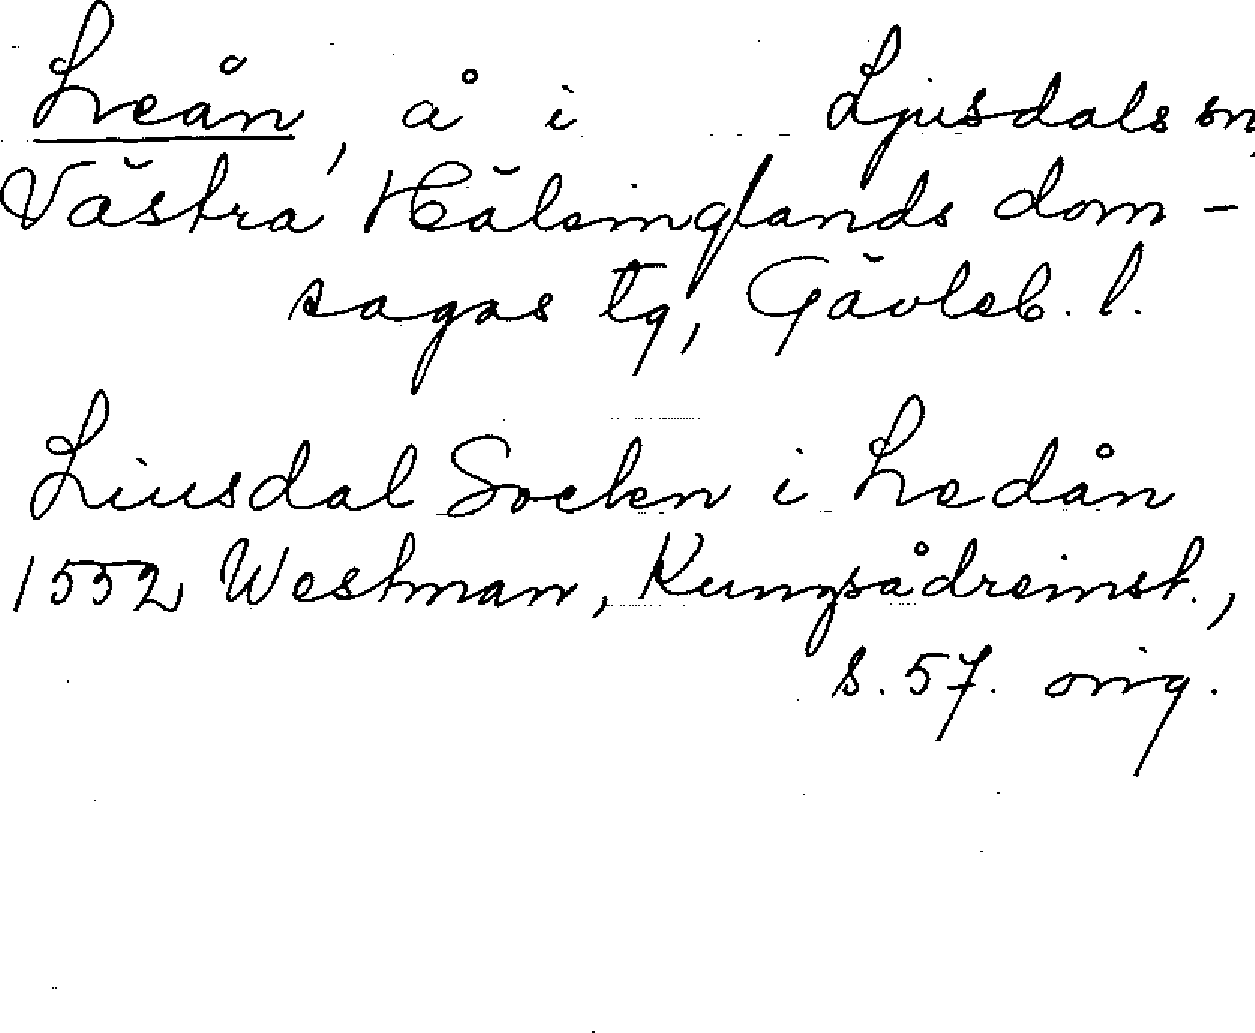 Leån, å i Ljusdals sn,
Västra Hälsinglands dom-
sagas tg, Gävleb. l.
Liusdal Socken i Ledån
1552 Westman, Kungsådreinst.,
s. 57. orig.